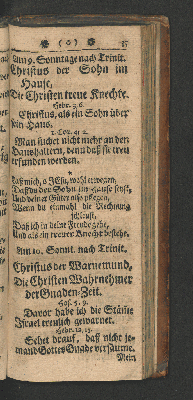 ( o )
Am 9. Sonntage nach Trinit.
Christus der Sohn im
Hause,
Die Christen treue Knechte.
Hebr. 3, 6.
Christus, als ein Sohn über
sein Haus.
1. Cor. 4, 2.
Man suchet nicht mehr an den
Haushaltern, denn daß sie treu
erfunden werden.
Laß mich, o JEsu, wohl erwegen,
Daß du der Sohn im Hause seyst,
Und deiner Güter also pflegen,
Wenn du einmahl die Rechnung
schleust,
Daß ich in deine Freude gehe,
Und als ein treuer Knecht bestehe.
Am 10. Sonnt. nach Trinit.
Christus der Warnemund,
Die Christen Wahrnehmer
der Gnaden-Zeit.
Hos. 5, 9.
Davor habe ich die Stämme
Israel treulich gewarnet.
Hebr. 12, 15.
Sehet drauf, daß nicht je-
mand Gottes Gnade versäume.
Mein